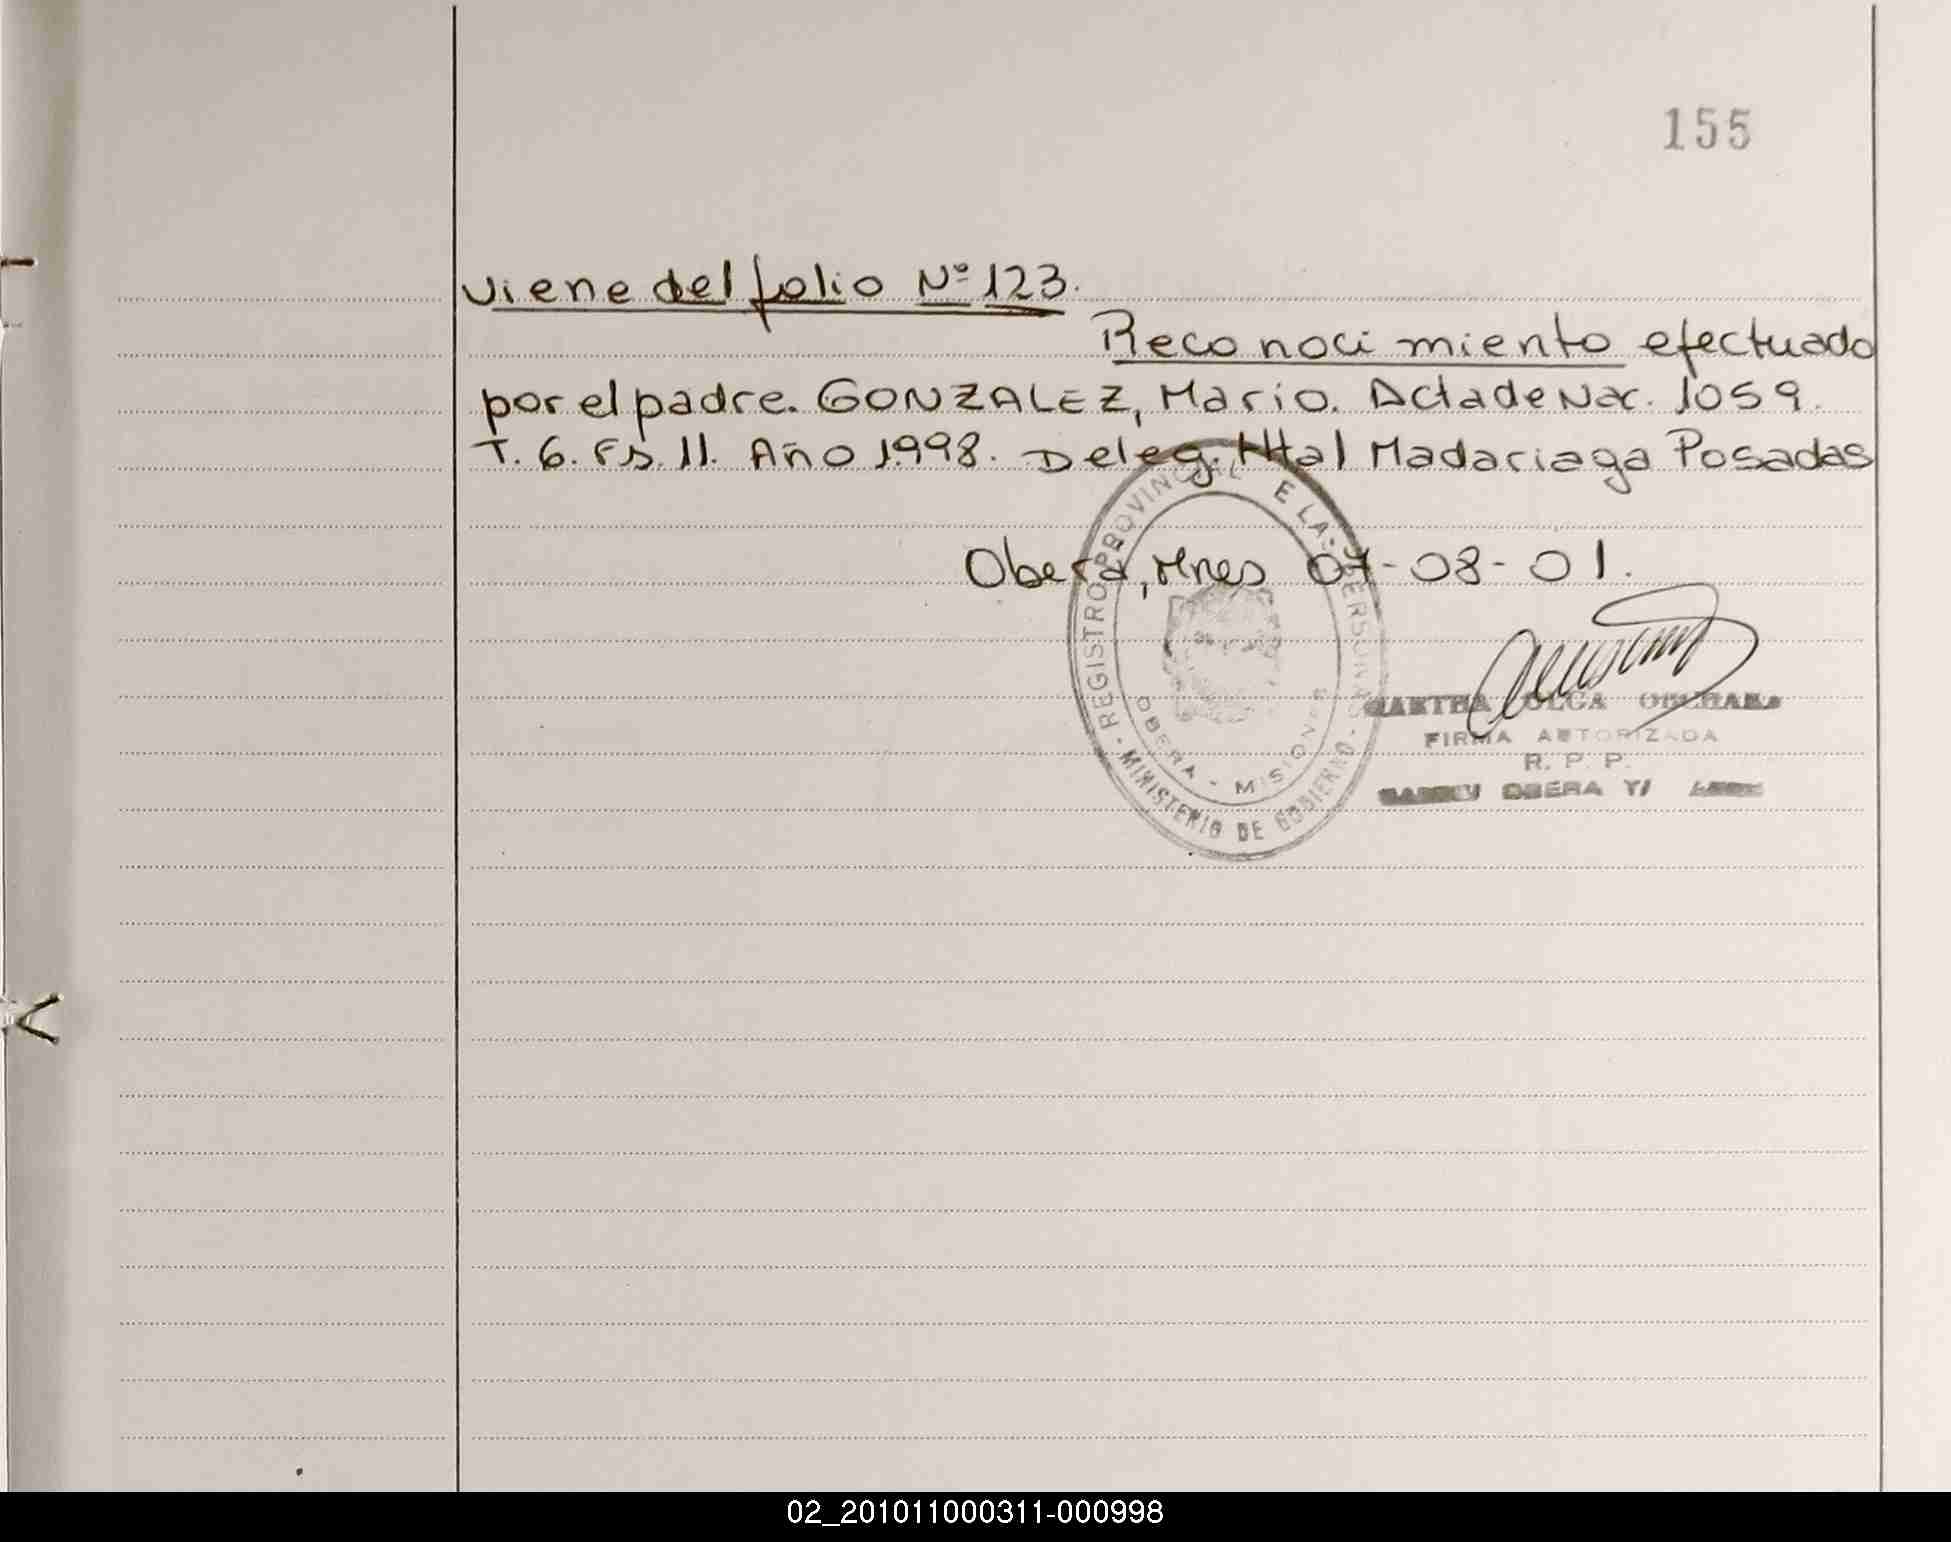 155
Viene del folio Nº 123.
Reconocimiento efectuado
por el padre. GONZALEZ, Mario. Acta de Nac. 1059.
T. 6. Fs. 11. Año 1998. Deleg. Htal Madariaga Posadas
Oberá, Mnes 07-08-01.
REGISTRO PROVINCIAL E LAS PERSONAS
OBERA - MISIONES
- MINISTERIO DE GOBIERNO -
MARTHA OLGA
FIRMA AUTORIZADA
R. P. P.
OBERA
02_201011000311-000998